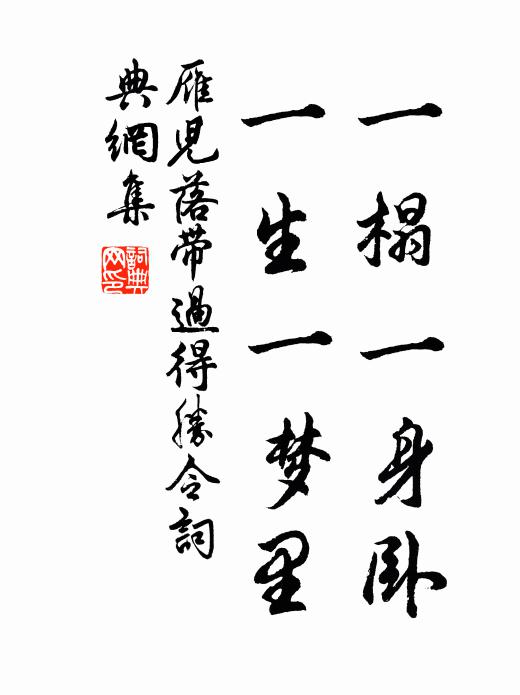 一榻一身卧
一生一梦里
雁児落带過得勝令詞
典網集
詞典
网印